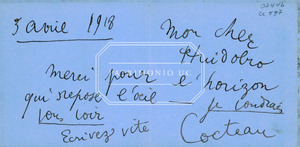 3 avril 1918
Mon cher
Huidobro
merci pour l'horizon
qui repose l'œil — je voudrais
vous voir
Ecrivez vite
Cocteau
PATRIMONIO UC